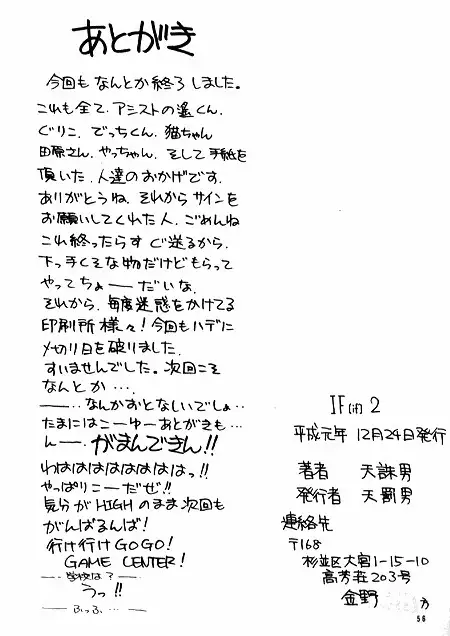 あとがき
今回も なんとか終了しました。
これも全て、アシストの遙くん、
ぐりこ、でっちくん、猫ちゃん
田原さん、やっちゃん、そして手紙を
頂いた、人達のおかげです。
ありがとうね、それからサインを
お願いしてくれた人、ごめんね
これ終ったらすぐ送るから、
下っ手くそな物だけどもらって
やってちょーーだいな、
それから、毎度迷惑をかけてる
印刷所様々!今回もハデに
〆切り日を破りました、
すいませんでした。次回こそ
なんとか…、
——…、なんかおとなしいでしょ…
たまにはこーゆーあとがきも…
んー、がまんできん!!
わははははははははっ!!
やっぱりこーだぜ!!
気分がHIGHのまま次回も
がんばるんば!
行け行けGOGO!
GAME CENTER!
——学校は?——
うっ!!
——ふっふ…——
IF(if)2
平成元年 12月24日発行
著者 天誅男
発行者 天罰男
連絡先
〒168
杉並区大宮1-15-10
高芳荘203号
金野
56